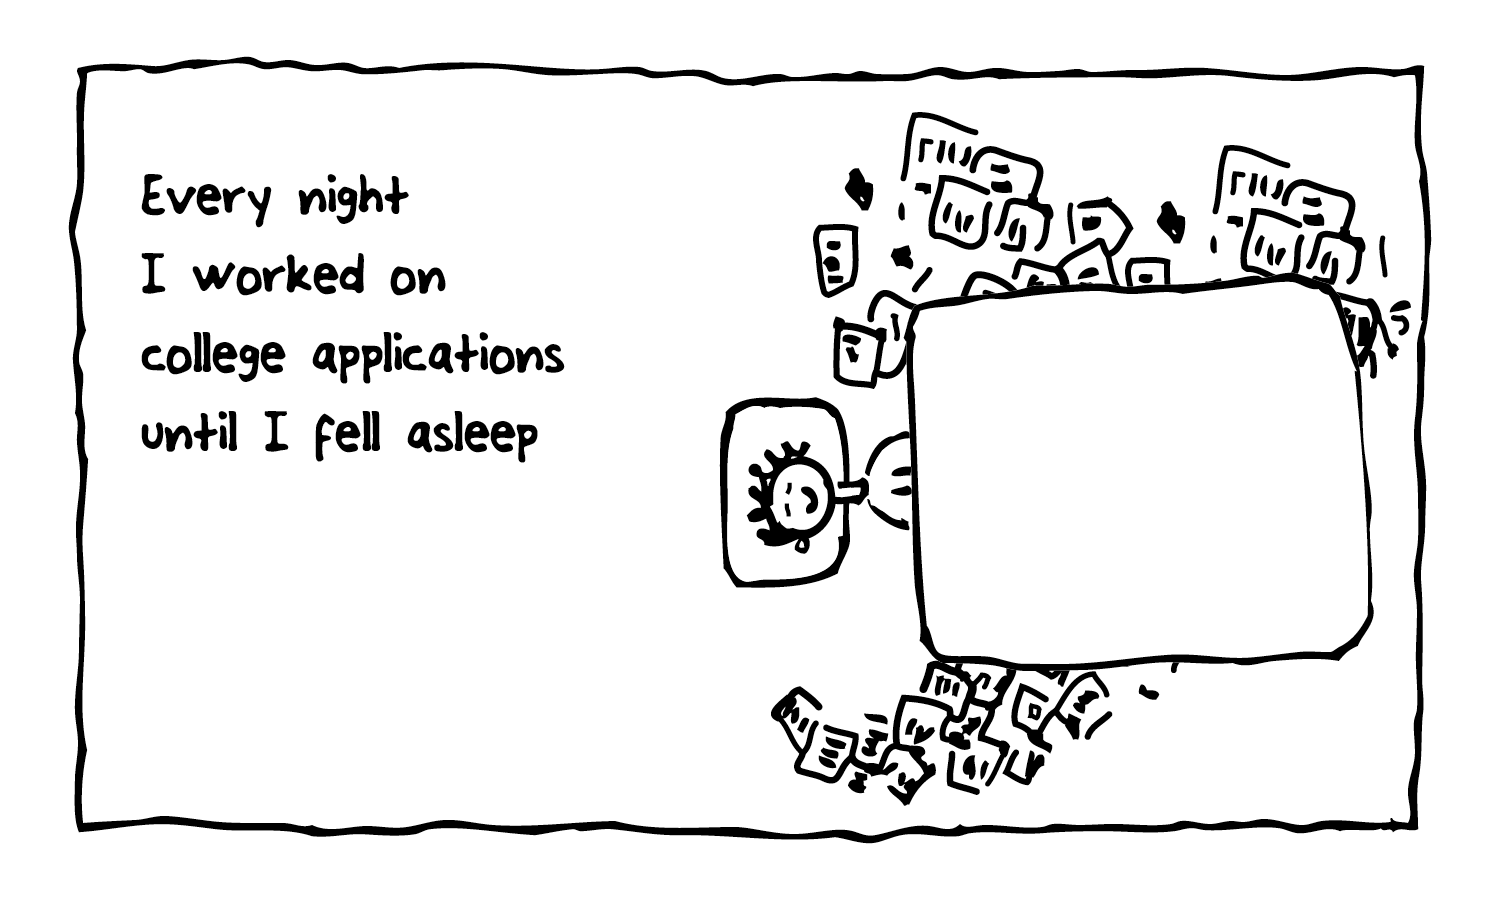 Every night
I worked on
college applications
until I fell asleep